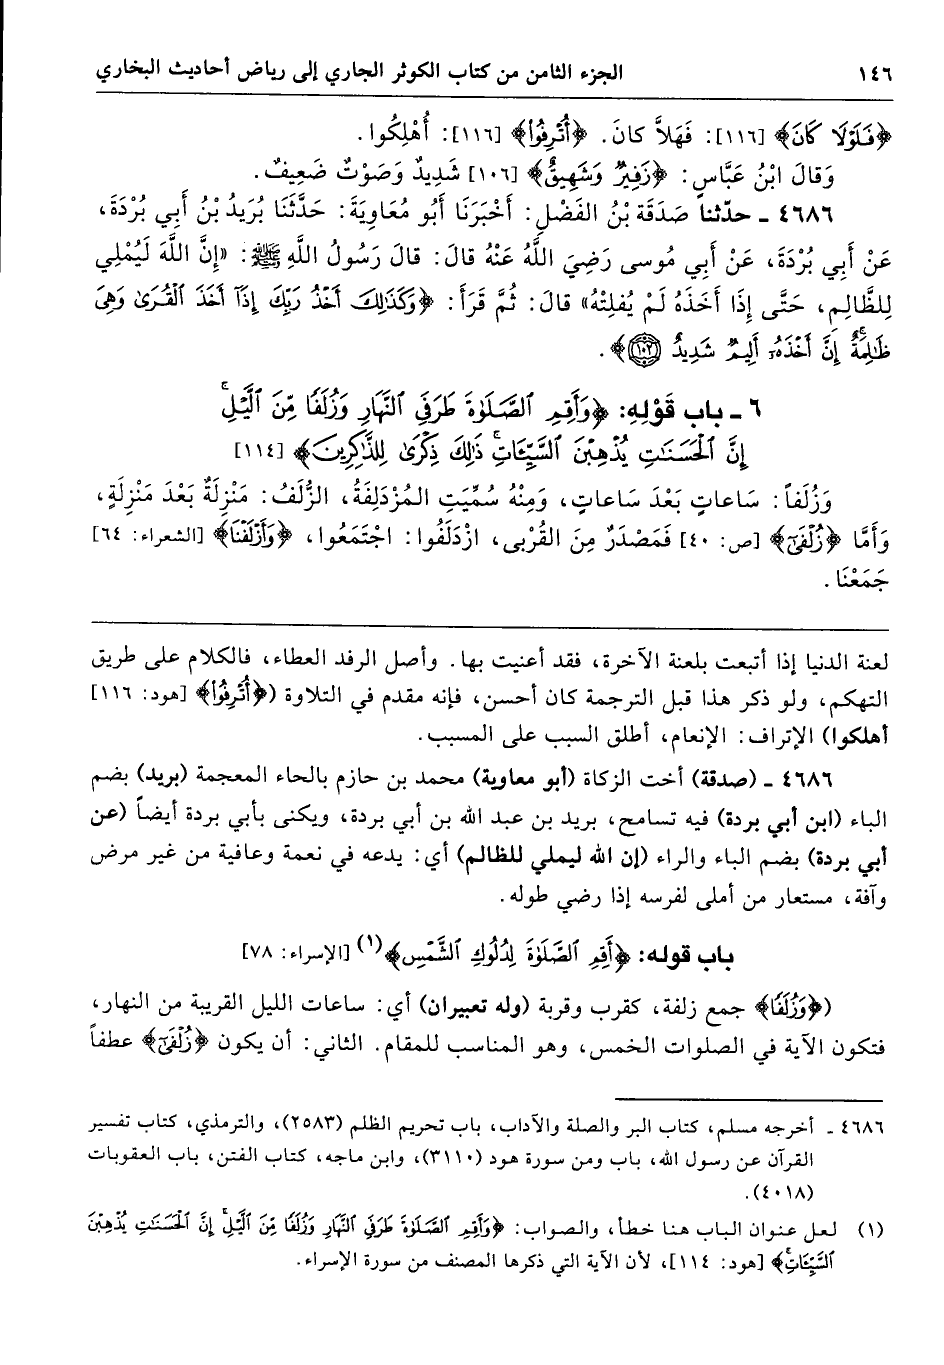 ١٤٦ الجزء الثامن من كتاب الكوثر الجاري إلى رياض أحاديث البخاري
﴿فَلَوْلَا كَانَ﴾ [١١٦]: فَهَلاَّ كانَ. ﴿أُتْرِفُوا﴾ [١١٦]: أُهْلِكُوا.
وَقالَ ابْنُ عَبَّاسٍ: ﴿زَفِيرٌ وَشَهِيقٌ﴾ [١٠٦] شَدِيدٌ وَصَوْتٌ ضَعِيفٌ.
٤٦٨٦ ـ حدّثنا صَدَقَة بْنُ الفَضْلِ: أَخْبَرَنَا أَبُو مُعَاوِيَةَ: حَدَّثَنَا بُرَيدُ بْنُ أَبِي بُرْدَةَ،
عَنْ أَبِي بُرْدَةَ، عَنْ أَبِي مُوسى رَضِيَ اللَّهُ عَنْهُ قالَ: قالَ رَسُولُ اللَّهِ ﷺ: «إِنَّ اللَّهَ لَيُمْلِي
لِلظَّالِمِ، حَتَّى إِذَا أَخَذَهُ لَمْ يُفلِتْهُ» قالَ: ثُمَّ قَرَأَ: ﴿وَكَذَٰلِكَ أَخْذُ رَبِّكَ إِذَآ أَخَذَ ٱلْقُرَىٰ وَهِىَ
ظَٰلِمَةٌ ۚ إِنَّ أَخْذَهُۥٓ أَلِيمٌ شَدِيدٌ ١٠٢﴾.
٦ ـ باب قَوْلِهِ: ﴿وَأَقِمِ ٱلصَّلَوٰةَ طَرَفَىِ ٱلنَّهَارِ وَزُلَفًا مِّنَ ٱلَّيْلِ ۚ
إِنَّ ٱلْحَسَنَٰتِ يُذْهِبْنَ ٱلسَّيِّـَٔاتِ ۚ ذَٰلِكَ ذِكْرَىٰ لِلذَّٰكِرِينَ﴾ [١١٤]
وَزُلَفاً: سَاعاتٍ بَعْدَ سَاعاتٍ، وَمِنْهُ سُمِّيَتِ المُزْدَلِفَةُ، الزُّلَفُ: مَنْزِلَةٌ بَعْدَ مَنْزِلَةٍ،
وَأَمَّا ﴿زُلْفَىٰٓ﴾ [ص: ٤٠] فَمَصْدَرٌ مِنَ القُرْبى، ازْدَلَفُوا: اجْتَمَعُوا، ﴿وَأَزْلَفْنَا﴾ [الشعراء: ٦٤]
جَمَعْنَا.
لعنة الدنيا إذا أتبعت بلعنة الآخرة، فقد أعنيت بها. وأصل الرفد العطاء، فالكلام على طريق
التهكم، ولو ذكر هذا قبل الترجمة كان أحسن، فإنه مقدم في التلاوة (﴿أُتْرِفُوا﴾ [هود: ١١٦]
أهلكوا) الإتراف: الإنعام، أطلق السبب على المسبب.
٤٦٨٦ ـ (صدقة) أخت الزكاة (أبو معاوية) محمد بن حازم بالحاء المعجمة (بريد) بضم
الباء (ابن أبي بردة) فيه تسامح، بريد بن عبد الله بن أبي بردة، ويكنى بأبي بردة أيضاً (عن
أبي بردة) بضم الباء والراء (إن الله ليملي للظالم) أي: يدعه في نعمة وعافية من غير مرض
وآفة، مستعار من أملى لفرسه إذا رضي طوله.
باب قوله: ﴿أَقِمِ ٱلصَّلَوٰةَ لِدُلُوكِ ٱلشَّمْسِ﴾(١) [الإسراء: ٧٨]
(﴿وَزُلَفًا﴾ جمع زلفة، كقرب وقربة (وله تعبيران) أي: ساعات الليل القريبة من النهار،
فتكون الآية في الصلوات الخمس، وهو المناسب للمقام. الثاني: أن يكون ﴿زُلْفَىٰٓ﴾ عطفاً
٤٦٨٦ ـ أخرجه مسلم، كتاب البر والصلة والآداب، باب تحريم الظلم (٢٥٨٣)، والترمذي، كتاب تفسير
القرآن عن رسول الله، باب ومن سورة هود (٣١١٠)، وابن ماجه، كتاب الفتن، باب العقوبات
(٤٠١٨).
(١) لعل عنوان الباب هنا خطأ، والصواب: ﴿وَأَقِمِ ٱلصَّلَوٰةَ طَرَفَىِ ٱلنَّهَارِ وَزُلَفًا مِّنَ ٱلَّيْلِ ۚ إِنَّ ٱلْحَسَنَٰتِ يُذْهِبْنَ
ٱلسَّيِّـَٔاتِ ۚ﴾ [هود: ١١٤]، لأن الآية التي ذكرها المصنف من سورة الإسراء.